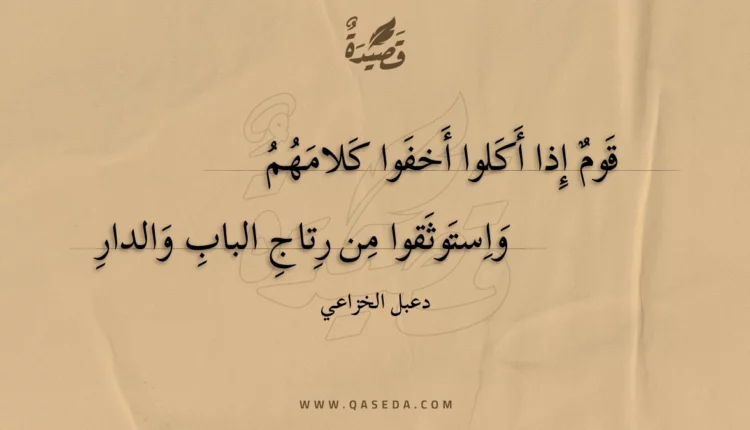 قَصِيْدَةٌ
قَومٌ إِذا أَكَلوا أَخفَوا كَلامَهُمُ
وَاِستَوثَقوا مِن رِتاجِ البابِ وَالدارِ
دعبل الخزاعي
WWW.QASEDA.COM